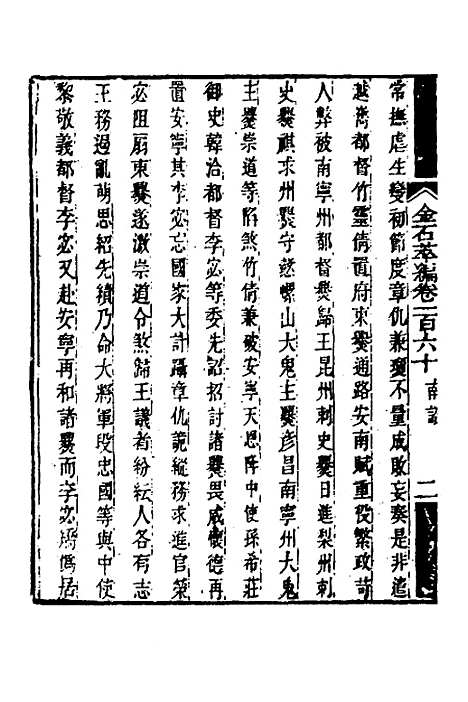 金石萃編卷一百六十 南詔 二
常撫虐生變初節度章仇兼瓊不量成敗妄奏是非遣
越嶲都督竹靈倩置府東爨通路安南賦重役繁政苛
人弊被南寧州都督爨歸王昆州刺史爨日進梨州刺
史爨祺求州爨守懿螺山大鬼主爨彥昌南寧州大鬼
主爨崇道等陷煞竹倩兼破安寧天恩降中使孫希莊
御史韓洽都督李宓等委先詔招討諸爨畏威懷德再
置安寧其李宓忘國家大計躡章仇詭縱務求進官榮
宓阻扇東爨遂激崇道令煞歸王議者紛紜人各有志
王務遏亂萌思紹先績乃命大將軍段忠國等與中使
黎敬義都督李宓又赴安寧再和諸爨而李宓矯僞居